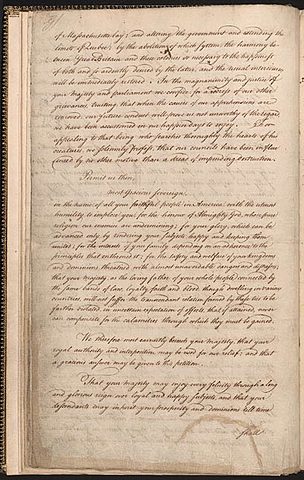 of Massachusetts bay; and altering the government and extending the
limits of Quebec; by the abolition of which system, the harmony be-
tween Great Britain and these colonies so necessary to the happiness
of both and so ardently desired by the latter, and the usual intercourses
will be immediately restored. In the magnanimity and justice of
your Majesty and parliament we confide, for a redress of our other
grievances, trusting, that when the causes of our apprehensions are
removed, our future conduct will prove us not unworthy of the regard
we have been accustomed in our happier days to enjoy. For
appealing to that being who searches thoroughly the hearts of his
creatures, we solemnly profess, that our councils have been influ
enced by no other motive than a dread of impending destruction.
Permit us then,
most Gracious Sovereign,
in the name of all your faithful people in America with the utmost
humility to implore you, for the honour of Almighty God, whose pure
religion our enemies are undermining; for your glory, which can be
advanced only by rendering your subjects happy and keeping them
united; for the interests of your family depending on an adherence to the
principles that enthroned it; for the safety and welfare of your kingdoms
and dominions threatned with almost unavoidable dangers and distresses;
that your Majesty, as the loving father of your whole people, connected by
the same bands of Law, loyalty, faith and blood, though dwelling in various
countries, will not suffer the transcendant relation formed by these ties to be
farther violated, in uncertain expectation of effects, that if attained, never
can compensate for the calamities through which they must be gained.
We therefore most earnestly beseech your Majesty, that your
royal authority and interposition may be used for our relief; and that
a gracious answer may be given to this petition.
That your majesty may enjoy every felicity through a long
and glorious reign over loyal and happy subjects, and that your
descendants may inherit your prosperity and dominions till time
shall